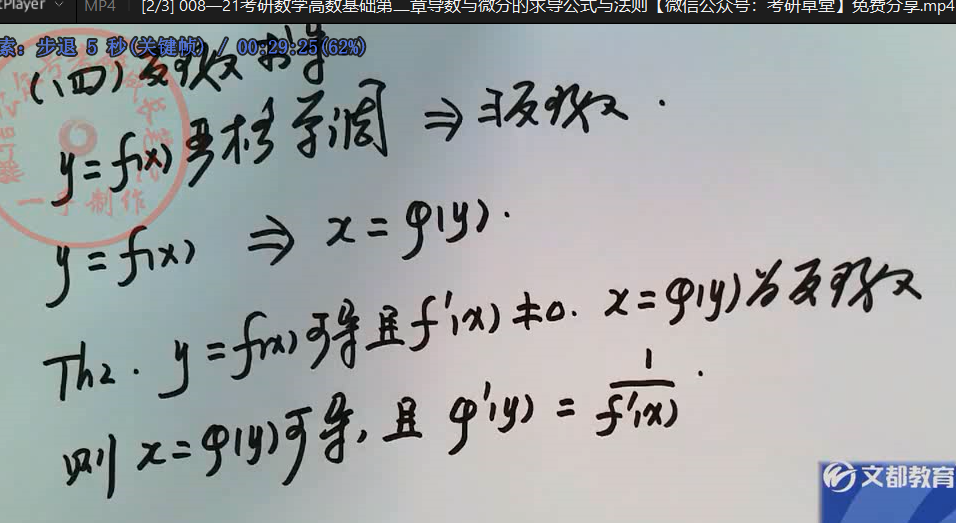 Player MP4 [2/3] 008—21考研数学高数基础第二章导数与微分的求导公式与法则【微信公众号：考研草堂】免费分享.mp4
索：步退 5 秒(关键帧) / 00:29:25(62%)
(四)反函数求导
y=f(x)严格单调 ⇒ ∃反函数.
一手制作
y=f(x) ⇒ x=φ(y).
Th2. y=f(x)可导且f'(x)≠0. x=φ(y)为反函数
则 x=φ(y)可导, 且 φ'(y) = 1/f'(x).
文都教育